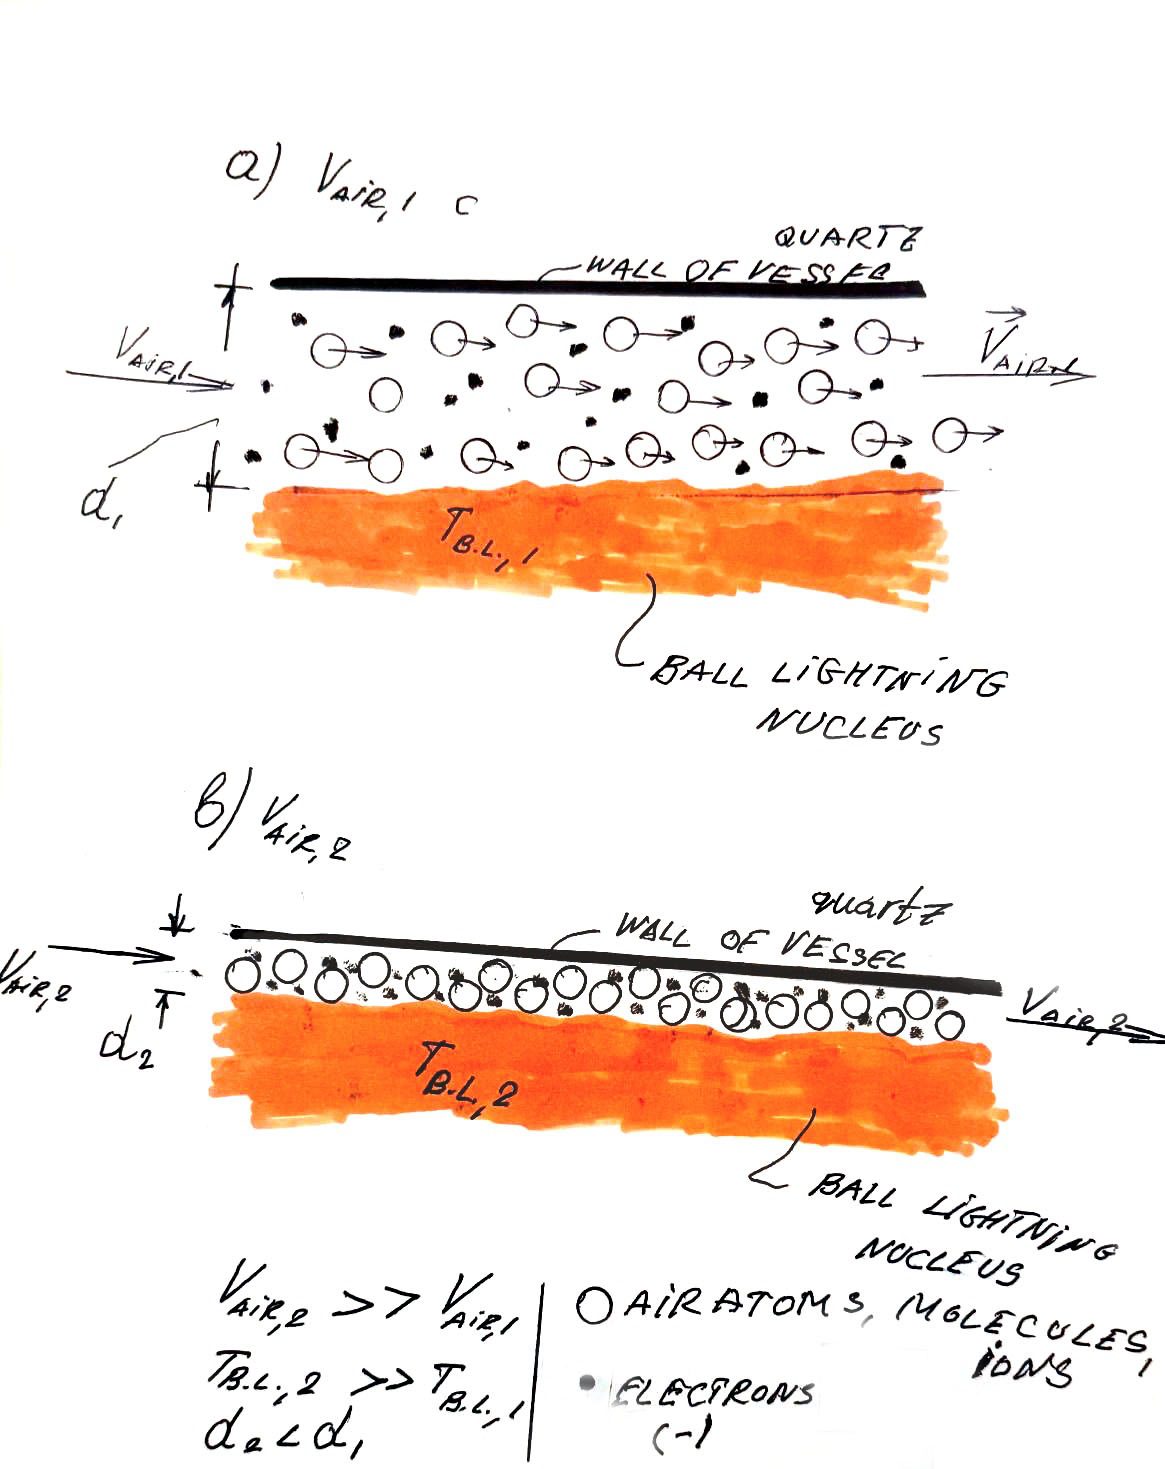 a) V AiR,1 c
QUARTZ
WALL OF VESSEL
V AiR,1
V AiR,1
d1
T B.L.,1
BALL LiGHTNiNG
NUCLEUS
b) V AiR,2
quartz
WALL OF VESSEL
V AiR,2
V AiR,2
d2
T B.L.,2
BALL LiGHTNiNG
NUCLEUS
V AiR,2 >> V AiR,1
T B.L.,2 >> T B.L.,1
d2 < d1
AiR ATOMS, MOLECULES,
iONS
ELECTRONS
(-)